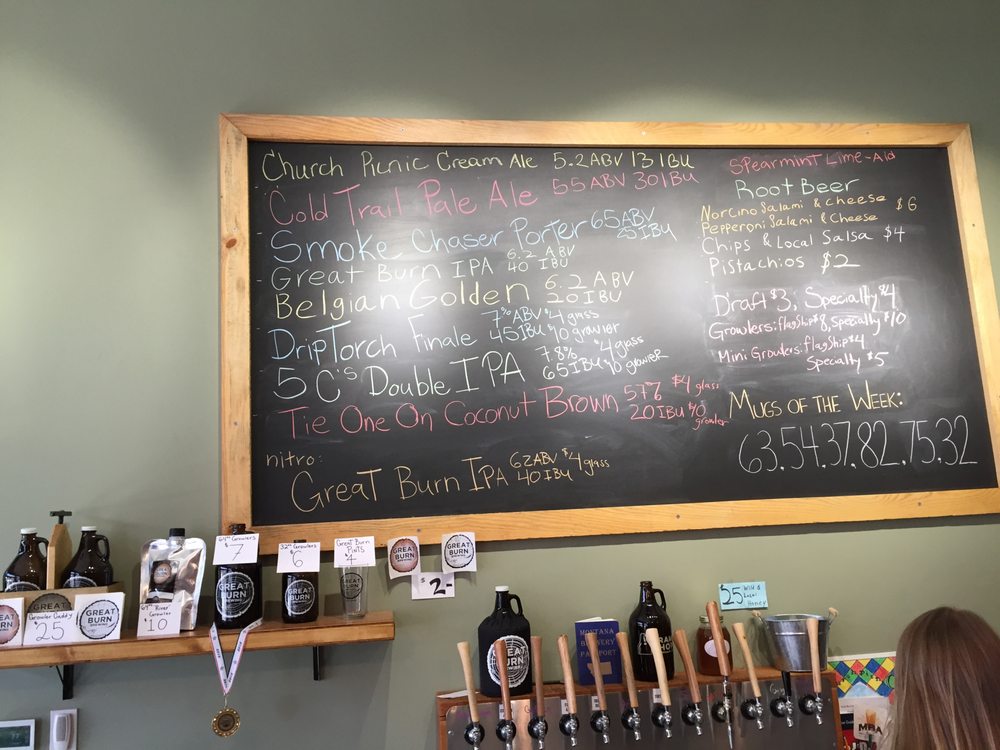 Church Picnic Cream Ale 5.2 ABV 13 IBU
Cold Trail Pale Ale 5.5 ABV 30 IBU
Smoke Chaser Porter 6.5 ABV
25 IBU
Great Burn IPA 6.2 ABV
40 IBU
Belgian Golden 6.2 ABV
20 IBU
DripTorch Finale 7% ABV $4 glass
45 IBU $10 growler
5 C's Double IPA 7.8% $4 glass
65 IBU $10 growler
Tie One On Coconut Brown 5.7% $4 glass
20 IBU $10 growler
nitro:
Great Burn IPA 6.2 ABV $4 glass
40 IBU
Spearmint Lime-Aid
Root Beer
Norcino Salami & Cheese $6
Pepperoni Salami & Cheese
Chips & Local Salsa $4
Pistachios $2
Draft $3; Specialty $4
Growlers: flagship $8, Specialty $10
Mini Growlers: flagship $4
Specialty $5
Mugs of the Week:
63.54.37.82.75.32
64oz Growlers
$7
32oz Growlers
$6
Great Burn Pints
$4
GREAT BURN BREWING
GREAT BURN BREWING
$2-
Growler Caddy
$25
GREAT BURN
64oz "River" Growler
$10
GREAT BURN
GREAT BURN
GREAT BURN
GREAT BURN
MONTANA
BREWERY
PASSPORT
$25 Wild &
Local
Honey